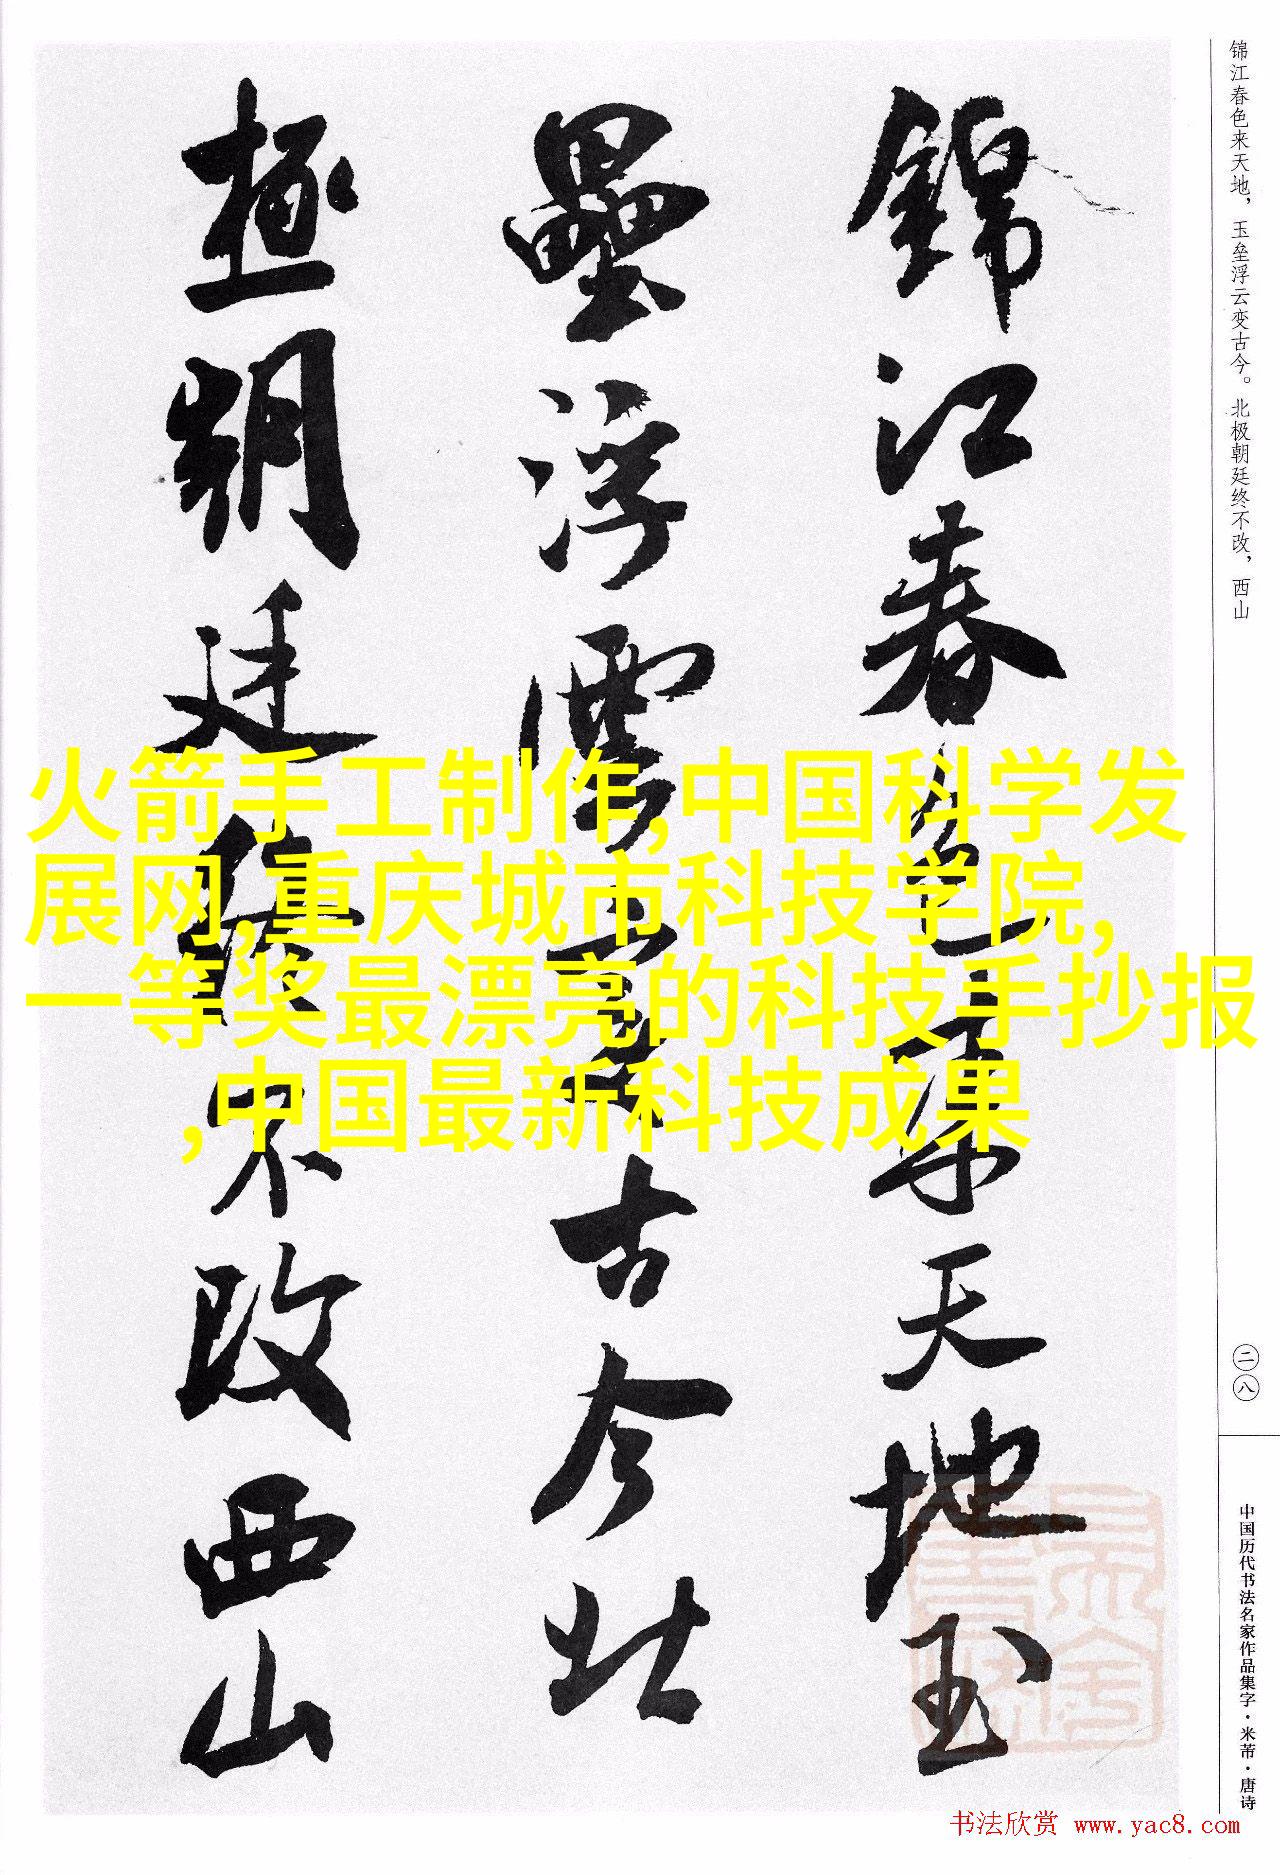 锦江春色来天地，玉垒浮云变古今。北极朝廷终不改，西山
錦江春色来天地玉
壘浮雲變古今北
極朝廷終不改西山
火箭手工制作,中国科学发
展网,重庆城市科技学院,
一等奖最漂亮的科技手抄报
,中国最新科技成果
二八
中国历代书法名家作品集字·米芾·唐诗
书法欣赏 www.yac8.com